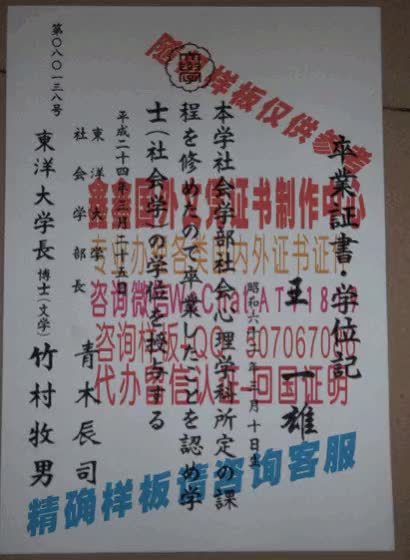 卒業証書・学位記
王 一雄
昭和六
年三月十日生
本学社会学部社会心理学科所定の課
程を修めたので卒業したことを認め学
士(社会学)の学位を授与する
平成二十四年三月二十五日
東洋大学
社会学部長 青木辰司
東洋大学長 博士(文学) 竹村牧男
第〇八〇一三八号
样板仅供参考
证书制作中心
外证书证件
咨询微信
咨询样板
代办留信认证-回国证明
精确样板请咨询客服